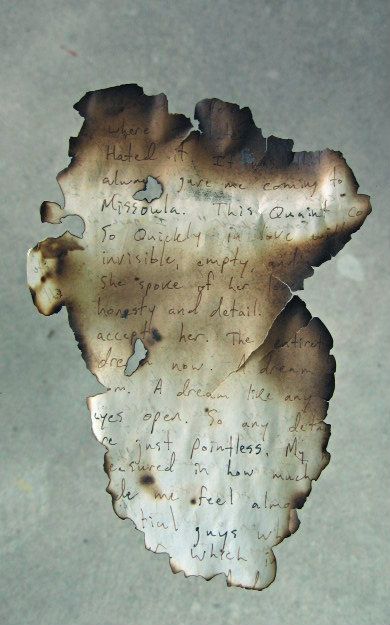 where
Hated it. It
always gave me coming to
Missoula. This Quaint co
So Quickly in love wi
invisible, empty, and
She spoke of her lo
honesty and detail.
accept her. The entire
dream now. A dream
om. A dream like any
eyes open. So any deta
re just pointless. My
easured in how much
de me feel almo
tial guys wh
which i